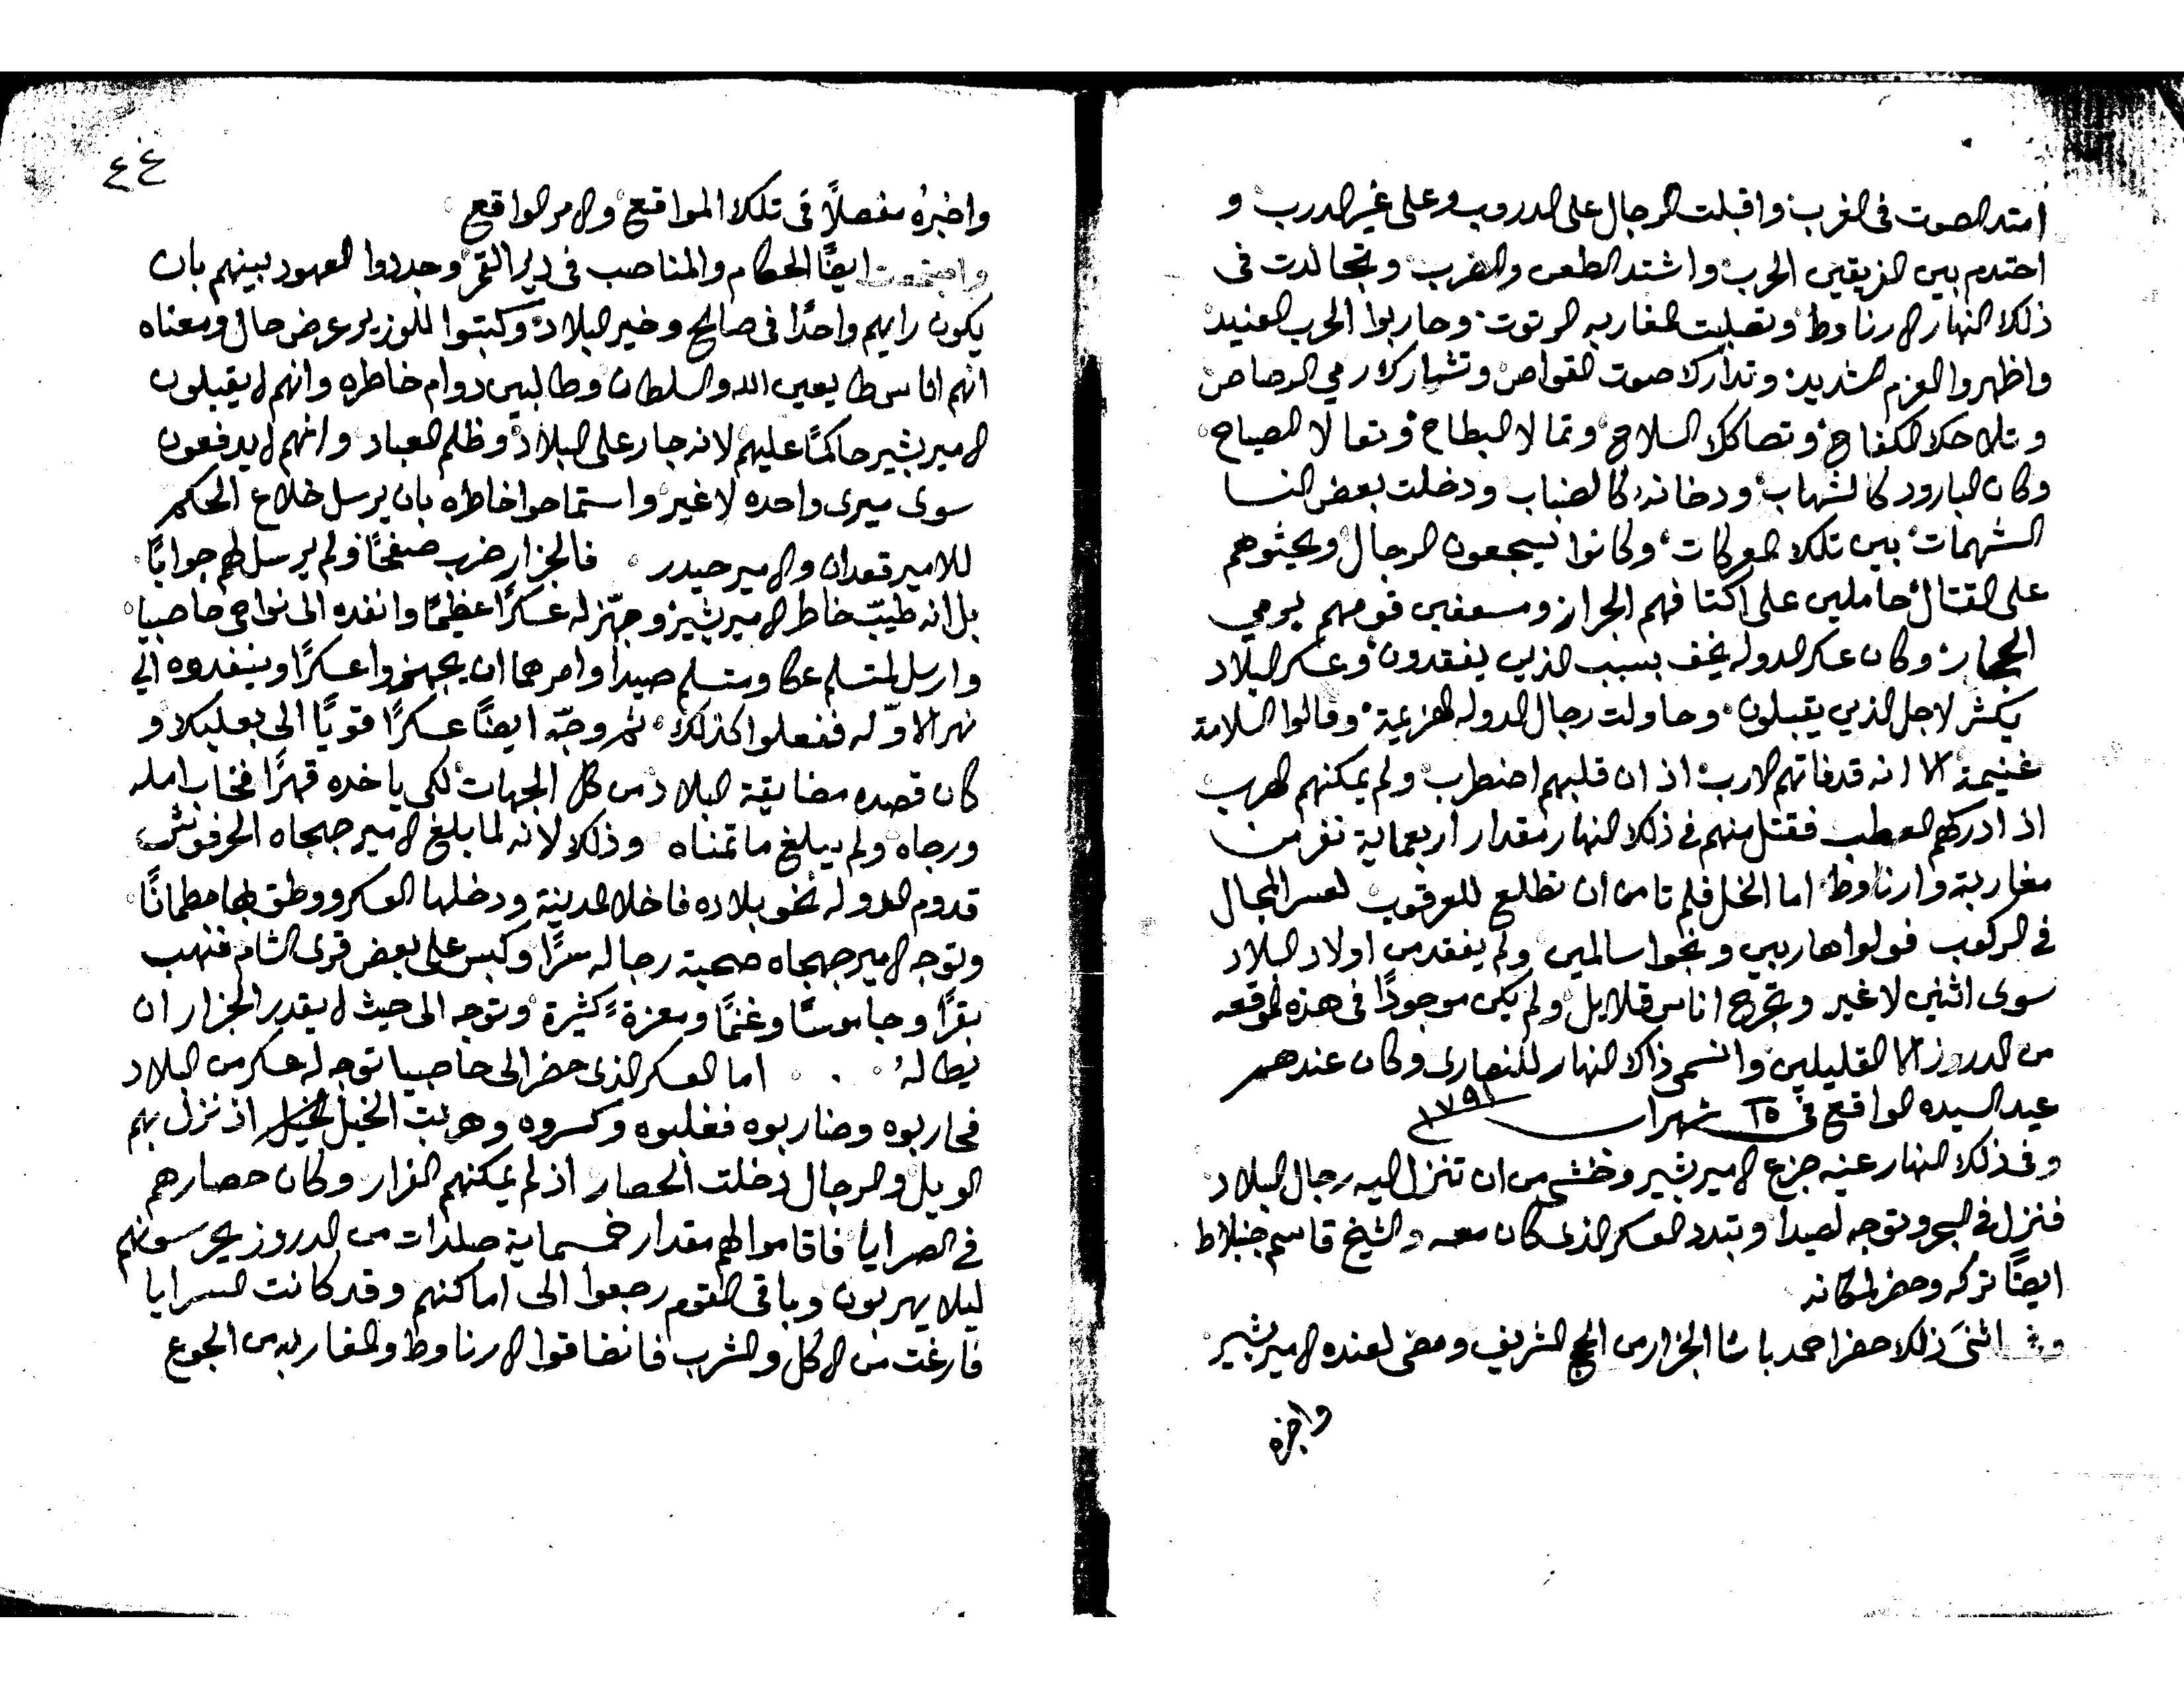 امتد الصوت في الغرب واقبلت الرجال على الدروب وعلى غير الدرب و
احتدم بين الفريقين الحرب واشتد الطعن والضرب وتجالدت في
ذلك النهار الارناوط وتصلبت المغاربه الرتوت وحاربوا الحرب العنيد
واظهروا العزم الشديد وتدارك صوت القواص وتشارك رمي الرصاص
وتلاحك الكفاح وتصاكك السلاح وتمالا البطاح وتعالا الصياح
وكان البارود كالشهاب ودخانه كالضباب ودخلت بعض النسا
الشهمات بين تلك المعركات وكانوا يسجعون الرجال ويحثوهم
على القتال حاملين على اكتافهم الجرار ومسعفين قومهم برمي
الحجار وكان عسكر الدوله يخف بسبب الذين يفقدون وعسكر البلاد
يكثر لاجل الذين يقبلون وحاولت رجال الدوله الهزيمة وقالوا السلامة
غنيمة الا انه قد فاتهم الارب اذ ان قلبهم اضطرب ولم يمكنهم الهرب
اذ ادركهم العطب فقتل منهم في ذلك النهار مقدار اربعماية نفر من
مغاربة وارناوط اما الخيل فلم تامن ان تطلع للعرقوب لعسر المجال
في الركوب فولوا هاربين ونجوا سالمين ولم يفقد من اولاد البلاد
سوى اثنين لا غير وتجرح اناس قلايل ولم يكن موجودًا في هذه الموقعه
من الدروز الا القليلين وانسمى ذاك النهار للنصارى وكان عندهم
عيد السيده الواقع في ٢٥ شهر اب ١٧٩١
وفي ذلك النهار عينه جزع الامير بشير وخشي من ان تنزل اليه رجال البلاد
فنزل في البحر وتوجه لصيدا وتبدد العسكر الذي كان معه والشيخ قاسم جنبلاط
ايضًا تركه وحضر لمكانه
وفي اثنى ذلك حضر احمد باشا الجزار من الحج الشريف ومضى لعنده الامير بشير
واخبره
٤٤
واخبره مفصلاً في تلك المواقع والامر الواقع
واجتمعت ايضًا الحكام والمناصب في دير القمر وجددوا العهود بينهم بان
يكون رايهم واحدًا في صالح وخير البلاد وكتبوا للوزير عرض حال ومعناه
انهم اناس طايعين الله والسلطان وطالبين دوام خاطره وانهم لا يقبلون
الامير بشير حاكمًا عليهم لانه جار على البلاد وظلم العباد وانهم لا يدفعون
سوى ميرى واحده لا غير واستماحوا خاطره بان يرسل خلاع الحكم
للامير قعدان والامير حيدر فالجزار ضرب صفحًا ولم يرسل لهم جوابًا
بل انه طيّب خاطر الامير بشير وجهّز له عسكرًا عظيمًا وانفده الى نواحي حاصبيا
وارسل لمتسلم عكا ومتسلم صيدا وامرهما ان يجهزوا عسكرًا وينفدوه الي
نهر الاوّله ففعلوا كذلك ثم وجّه ايضًا عسكرًا قويًا الى بعلبك و
كان قصده مضايقة البلاد من كل الجهات لكي ياخده قهرًا فخاب امله
ورجاه ولم يبلغ ما تمناه وذلك لانه لما بلغ الامير جهجاه الحرفوش
قدوم الدوله نحو بلاده فاخلا المدينة ودخلها العسكر ووطق بها مطمانًا
وتوجه الامير جهجاه صحبة رجاله سرًا وكبس على بعض قرى الشام فنهب
بقرًا وجاموسًا وغنمًا ومعزةً كثيرة وتوجه الى حيث لا يقدر الجزار ان
يطاله اما العسكر الذي حضر الى حاصبيا توجه له عسكر من البلاد
فحاربوه وضاربوه فغلبوه وكسروه وهربت الخيل الخيل اذ نزل بهم
الويل والرجال دخلت الحصار اذ لم يمكنهم الفرار وكان حصارهم
في الصرايا فاقاموا لهم مقدار خمسماية صلدات من الدروز يحرسونهم
ليلا يهربون وباقي القوم رجعوا الى اماكنهم وقد كانت السرايا
فارغت من الاكل والشرب فانضاقوا الارناوط والمغاربه من الجوع